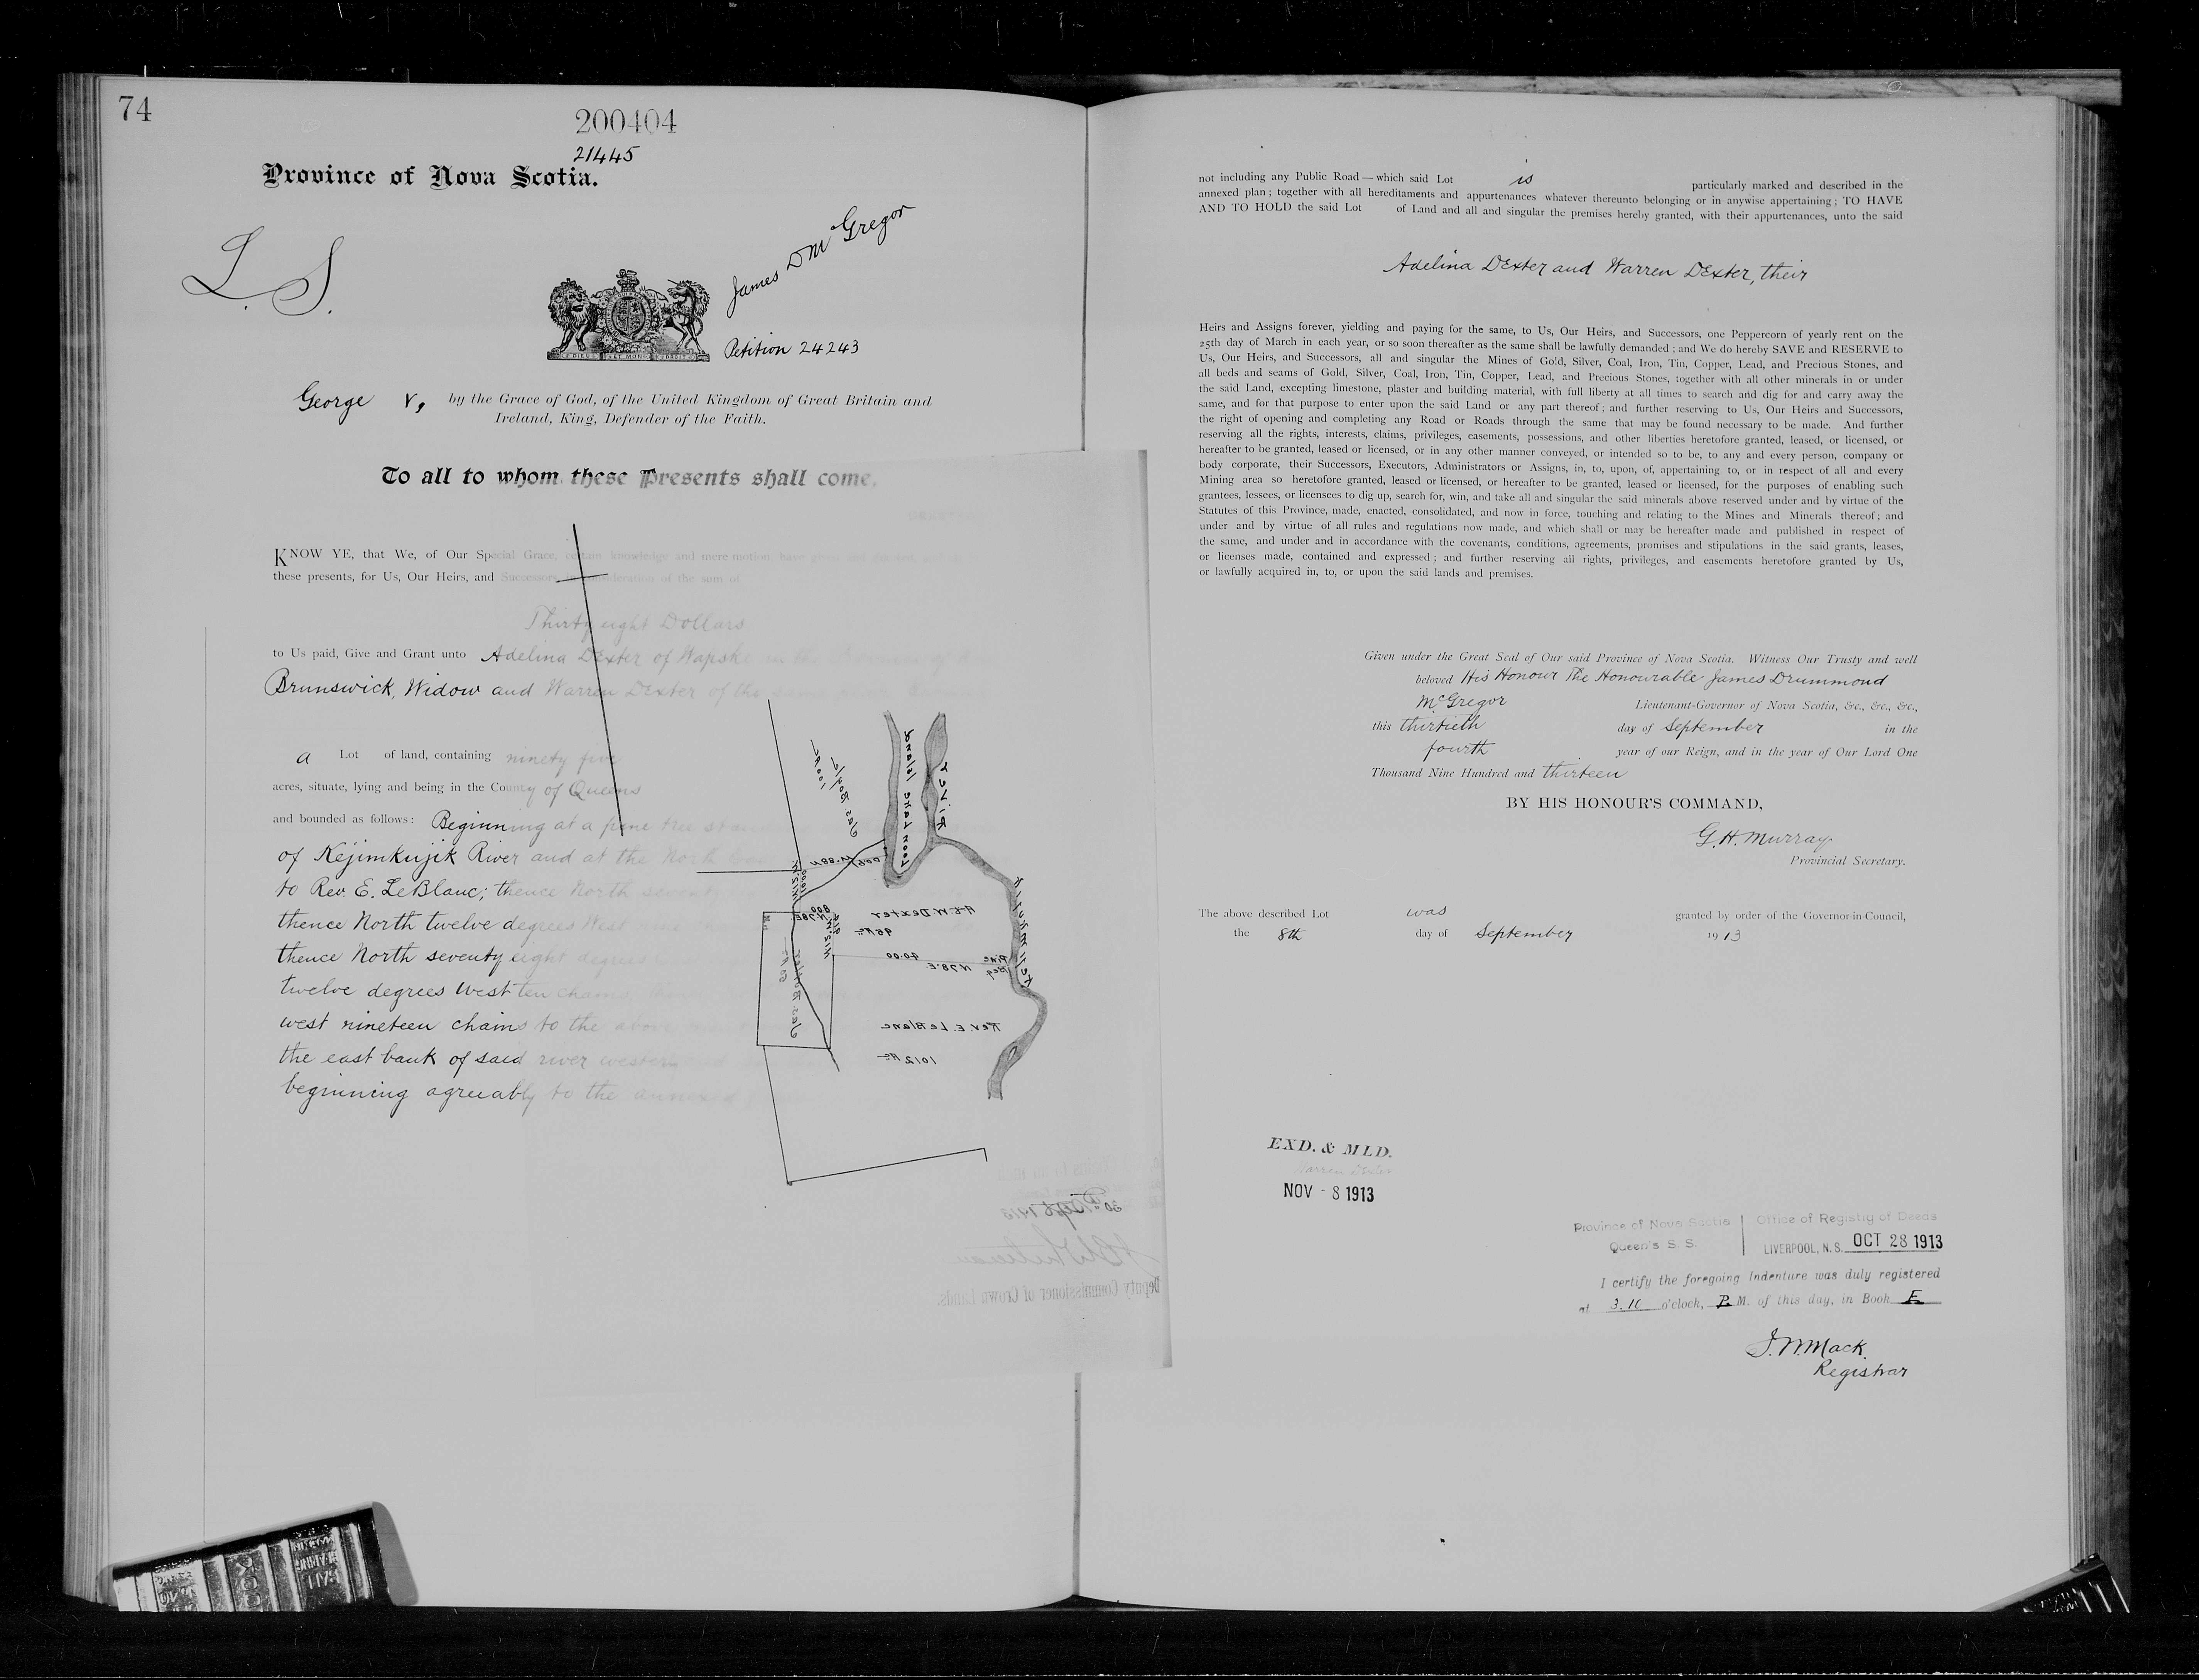 74
200404
21445
Province of Nova Scotia.
L. S.
James D McGregor
Petition 24243
George V, by the Grace of God, of the United Kingdom of Great Britain and
Ireland, King, Defender of the Faith.
To all to whom these Presents shall come,
KNOW YE, that We, of Our Special Grace, certain knowledge and mere motion, have given and granted
these presents, for Us, Our Heirs, and Successors, in consideration of the sum of
Thirty eight Dollars
to Us paid, Give and Grant unto Adelina Dexter of Wapske in the
Brunswick, Widow and Warren Dexter of the same
a Lot of land, containing ninety five
acres, situate, lying and being in the County of Queens
and bounded as follows: Beginning at a pine tree
of Kejimkujik River and at the North
to Rev. E. LeBlanc; thence North seventy
thence North twelve degrees West nine
thence North seventy eight degrees
twelve degrees West ten chains, thence
west nineteen chains to the above
the east bank of said river
beginning agreeably to the annexed
100 Ac
Jas. Butler
Loon Lake Island
River
Kejimkujik
A & W. Dexter
95 Ac
40.00
N 78° E.
Pine
Beg
N 78 E
800
N 12 W
Jas. Butler
Rev. E. LeBlanc
1012 Ac
30th Sept 1913
Deputy Commissioner of Crown Lands.
not including any Public Road — which said Lot is particularly marked and described in the
annexed plan; together with all hereditaments and appurtenances whatever thereunto belonging or in anywise appertaining; TO HAVE
AND TO HOLD the said Lot of Land and all and singular the premises hereby granted, with their appurtenances, unto the said
Adelina Dexter and Warren Dexter, their
Heirs and Assigns forever, yielding and paying for the same, to Us, Our Heirs, and Successors, one Peppercorn of yearly rent on the
25th day of March in each year, or so soon thereafter as the same shall be lawfully demanded; and We do hereby SAVE and RESERVE to
Us, Our Heirs, and Successors, all and singular the Mines of Gold, Silver, Coal, Iron, Tin, Copper, Lead, and Precious Stones, and
all beds and seams of Gold, Silver, Coal, Iron, Tin, Copper, Lead, and Precious Stones, together with all other minerals in or under
the said Land, excepting limestone, plaster and building material, with full liberty at all times to search and dig for and carry away the
same, and for that purpose to enter upon the said Land or any part thereof; and further reserving to Us, Our Heirs and Successors,
the right of opening and completing any Road or Roads through the same that may be found necessary to be made. And further
reserving all the rights, interests, claims, privileges, easements, possessions, and other liberties heretofore granted, leased, or licensed, or
hereafter to be granted, leased or licensed, or in any other manner conveyed, or intended so to be, to any and every person, company or
body corporate, their Successors, Executors, Administrators or Assigns, in, to, upon, of, appertaining to, or in respect of all and every
Mining area so heretofore granted, leased or licensed, or hereafter to be granted, leased or licensed, for the purposes of enabling such
grantees, lessees, or licensees to dig up, search for, win, and take all and singular the said minerals above reserved under and by virtue of the
Statutes of this Province, made, enacted, consolidated, and now in force, touching and relating to the Mines and Minerals thereof; and
under and by virtue of all rules and regulations now made, and which shall or may be hereafter made and published in respect of
the same, and under and in accordance with the covenants, conditions, agreements, promises and stipulations in the said grants, leases,
or licenses made, contained and expressed; and further reserving all rights, privileges, and easements heretofore granted by Us,
or lawfully acquired in, to, or upon the said lands and premises.
Given under the Great Seal of Our said Province of Nova Scotia. Witness Our Trusty and well
beloved His Honour The Honourable James Drummond
McGregor Lieutenant-Governor of Nova Scotia, &c., &c., &c.,
this thirtieth day of September in the
fourth year of our Reign, and in the year of Our Lord One
Thousand Nine Hundred and thirteen
BY HIS HONOUR'S COMMAND,
G. H. Murray
Provincial Secretary.
The above described Lot was granted by order of the Governor-in-Council,
the 8th day of September 1913
EXD. & MLD.
Warren Dexter
NOV - 8 1913
Province of Nova Scotia
Queen's S. S.
Office of Registry of Deeds
LIVERPOOL, N. S. OCT 28 1913
I certify the foregoing Indenture was duly registered
at 3.10 o'clock, P. M. of this day, in Book F
J. W. Mack
Registrar